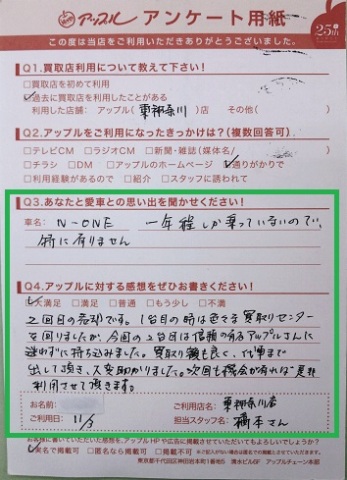 アップル アンケート用紙
25th
この度は当店をご利用いただきありがとうございました。
Q1.買取店利用について教えて下さい!
□買取店を初めて利用
☑過去に買取店を利用したことがある
利用した店舗：アップル（東神奈川）店　その他（　　　）
Q2.アップルをご利用になったきっかけは?（複数回答可）
□テレビCM □ラジオCM □新聞・雑誌（媒体名/　　　）
□チラシ □DM □アップルのホームページ ☑通りがかりで
□利用経験があるので □紹介 □スタッフに誘われて
Q3.あなたと愛車との思い出を聞かせてください!
車名： N-ONE 一年程しか乗っていないので、
特に有りません
Q4.アップルに対する感想をぜひお書きください!
☑大満足 □満足 □普通 □もう少し □不満
2回目の売却です。1台目の時は色々な買取りセンター
を回りましたが、今回の2台目は信頼の有るアップルさんに
迷わずに持ち込みました。買取り額も良く、代車まで
出して頂き、大変助かりました。次回も機会が有れば是非
利用させて頂きます。
お名前：
ご利用店名： 東神奈川店
ご利用日： 11/3
担当スタッフ名： 橋本さん
お客様に書いていただいた感想を、アップルHPや広告に掲載させていただいてもよろしいでしょうか?
☑実名で掲載可 □匿名なら掲載可 □掲載不可
東京都千代田区神田岩本町1番地5 清水ビル6F アップルチェーン本部